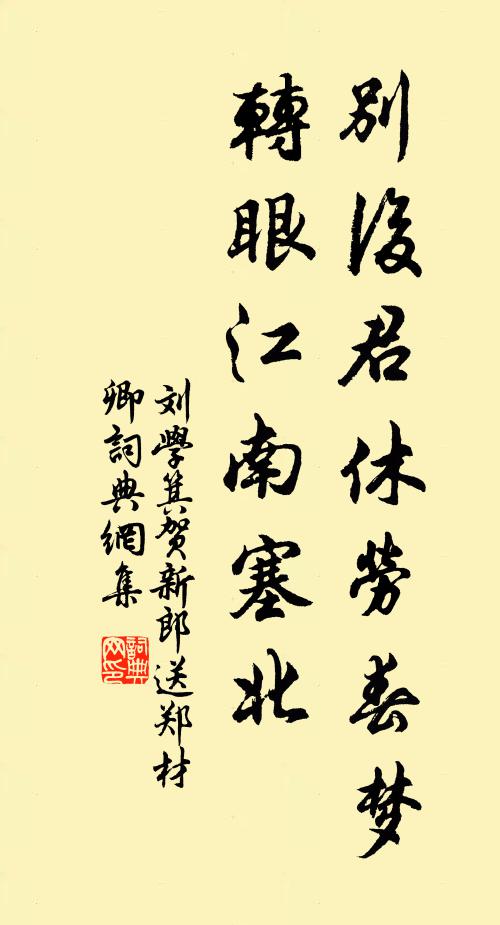 别後君休勞春梦
轉眼江南塞北
刘學箕贺新郎送郑材
卿詞典網集
詞典网印